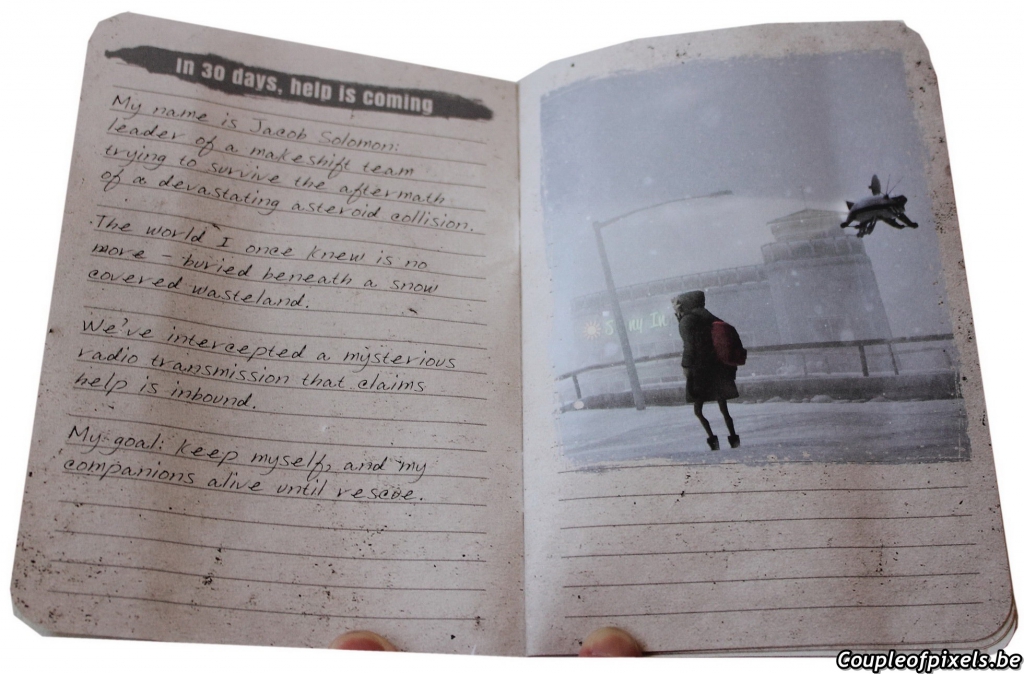 In 30 days, help is coming
My name is Jacob Solomon:
leader of a makeshift team
trying to survive the aftermath
of a devastating asteroid collision.
The world I once knew is no
more - buried beneath a snow
covered wasteland.
We've intercepted a mysterious
radio transmission that claims
help is inbound.
My goal: keep myself, and my
companions alive until rescue.
In
Coupleofpixels.be